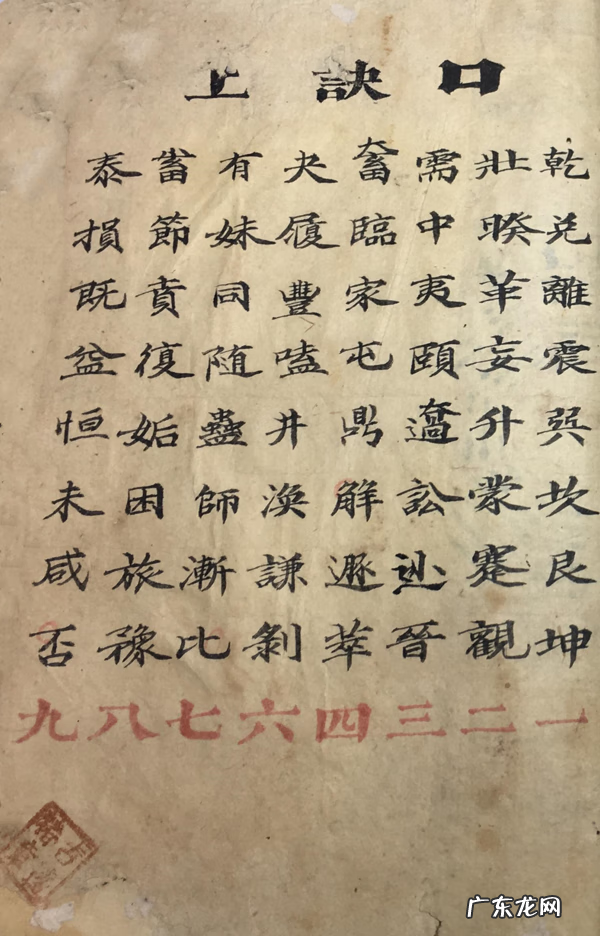 口訣上
乾兌離震巽坎艮坤一
壯睽革妄升蒙蹇觀二
需中夷頤大過訟小過晉三
大畜臨家屯鼎解遯萃四
夬履豐嗑井渙謙剝六
有妹同随蠱師漸比七
小畜節賁復姤困旅豫八
泰損既益恒未咸否九
广东龙网